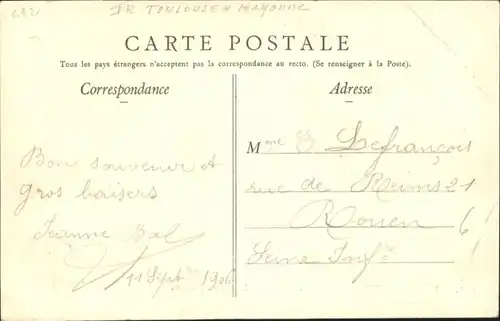 CARTE POSTALE
Tous les pays étrangers n'acceptent pas la correspondance au recto. (Se renseigner à la Poste).
Correspondance
Adresse
Bon souvenir et
gros baisers
Jeanne
11 Sept 1906
Mme Lefrançois
rue de Reims 21
Rouen
Seine Infre